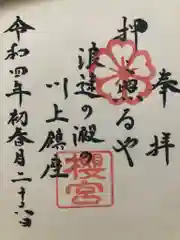 奉拝
押し照るや
浪速の淀の
川上鎮座
櫻宮
令和四年初春月二十二日